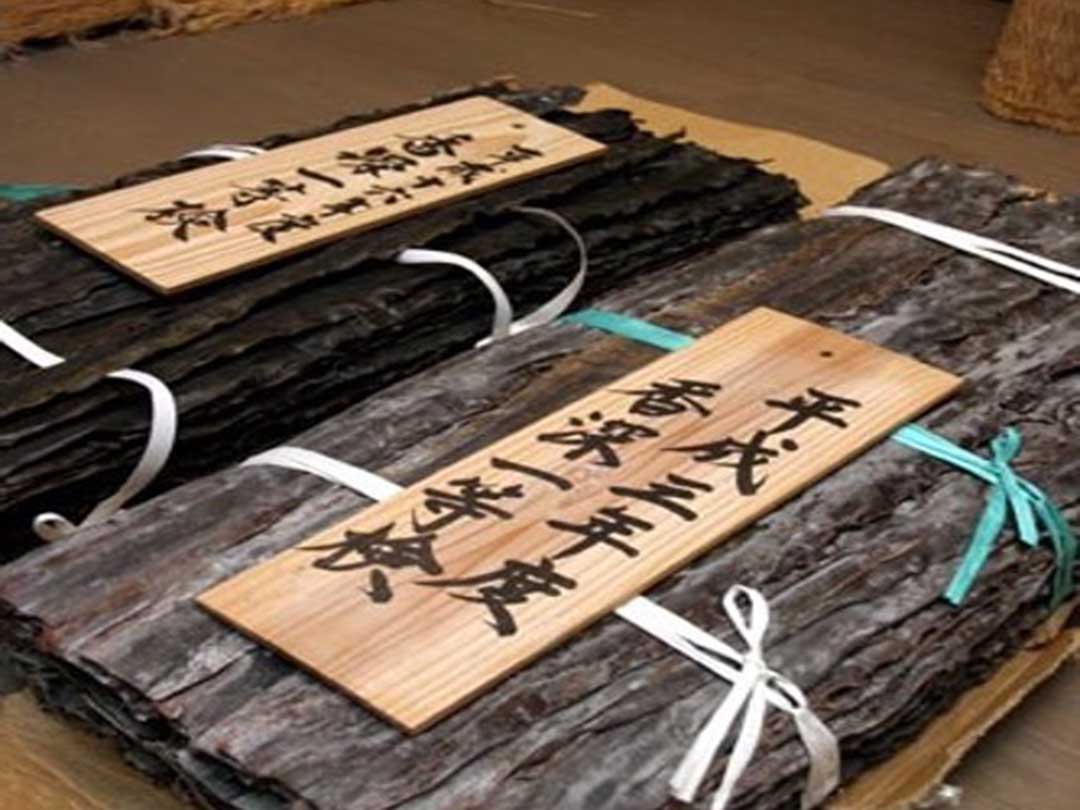 平成三年度
香深一等検
平成十六年度
香深一等検